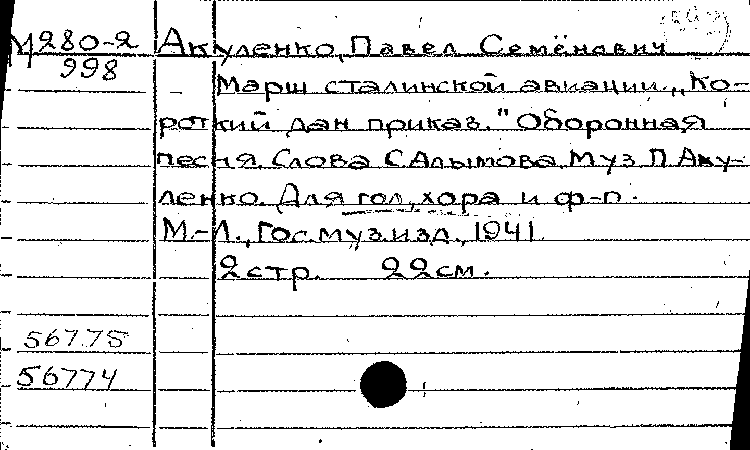 М280-2 Акуленко, Павел Семёнович
998
Марш сталинской авиации. „Ко-
роткий дан приказ." Оборонная
песня. Слова С Алымова. Муз П Аку-
ленко. Для гол, хора и ф-п.
М-Л., Гос. муз. изд., 1941
2 стр. 22 см.
56775
56774